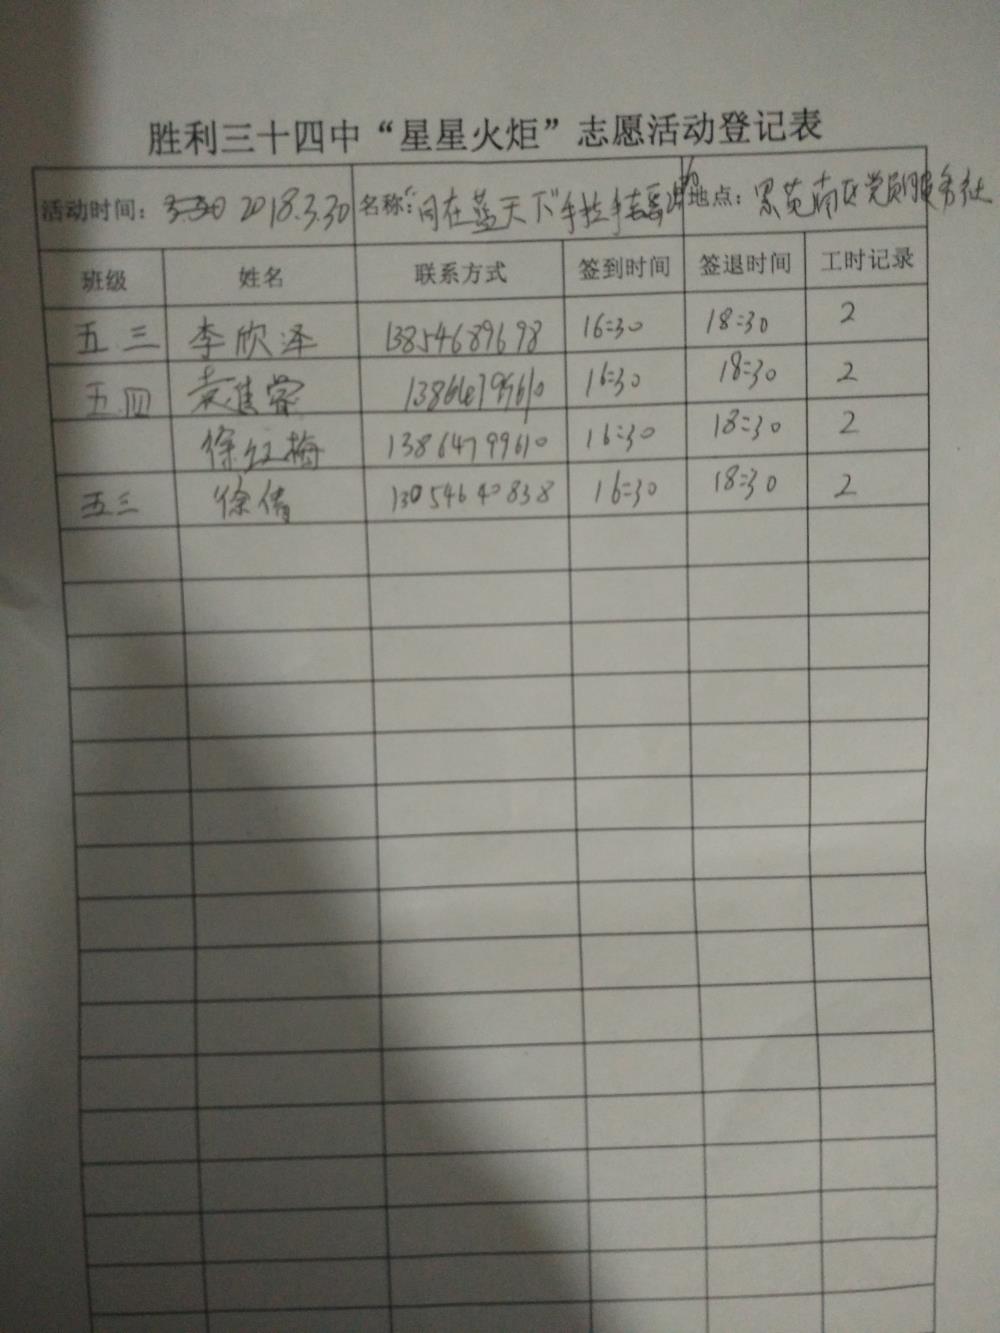 胜利三十四中“星星火炬”志愿活动登记表
活动时间： 2018.3.30 名称：“同在蓝天下”手拉手 地点： 景苑南区党员服务社
班级 姓名 联系方式 签到时间 签退时间 工时记录
五.三 李欣泽 13854689698 16:30 18:30 2
五.四 16:30 18:30 2
徐红梅 13864799610 16:30 18:30 2
五三 徐倩 13054640838 16:30 18:30 2